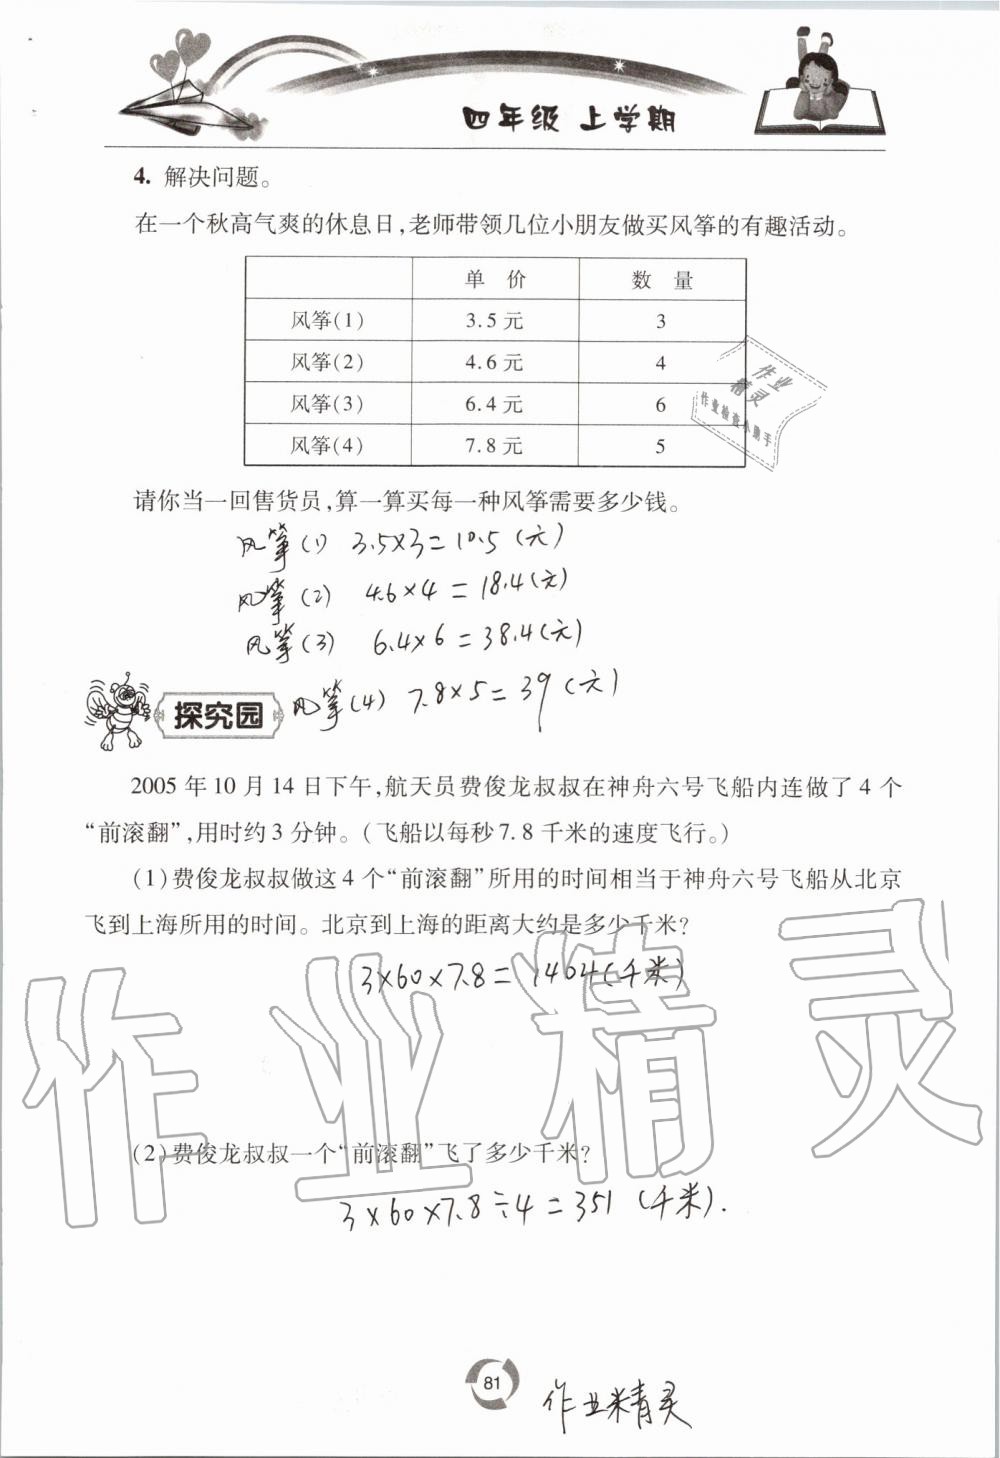 四年级 上学期
4. 解决问题。
在一个秋高气爽的休息日,老师带领几位小朋友做买风筝的有趣活动。
单 价 数 量
风筝(1) 3.5元 3
风筝(2) 4.6元 4
风筝(3) 6.4元 6
风筝(4) 7.8元 5
作业
精灵
作业检查小助手
请你当一回售货员,算一算买每一种风筝需要多少钱。
风筝(1) 3.5×3=10.5(元)
风筝(2) 4.6×4=18.4(元)
风筝(3) 6.4×6=38.4(元)
风筝(4) 7.8×5=39(元)
探究园
2005年10月14日下午,航天员费俊龙叔叔在神舟六号飞船内连做了4个
“前滚翻”,用时约3分钟。(飞船以每秒7.8千米的速度飞行。)
(1)费俊龙叔叔做这4个“前滚翻”所用的时间相当于神舟六号飞船从北京
飞到上海所用的时间。北京到上海的距离大约是多少千米?
3×60×7.8=1404(千米)
作业精灵
(2)费俊龙叔叔一个“前滚翻”飞了多少千米?
3×60×7.8÷4=351(千米).
81
作业精灵